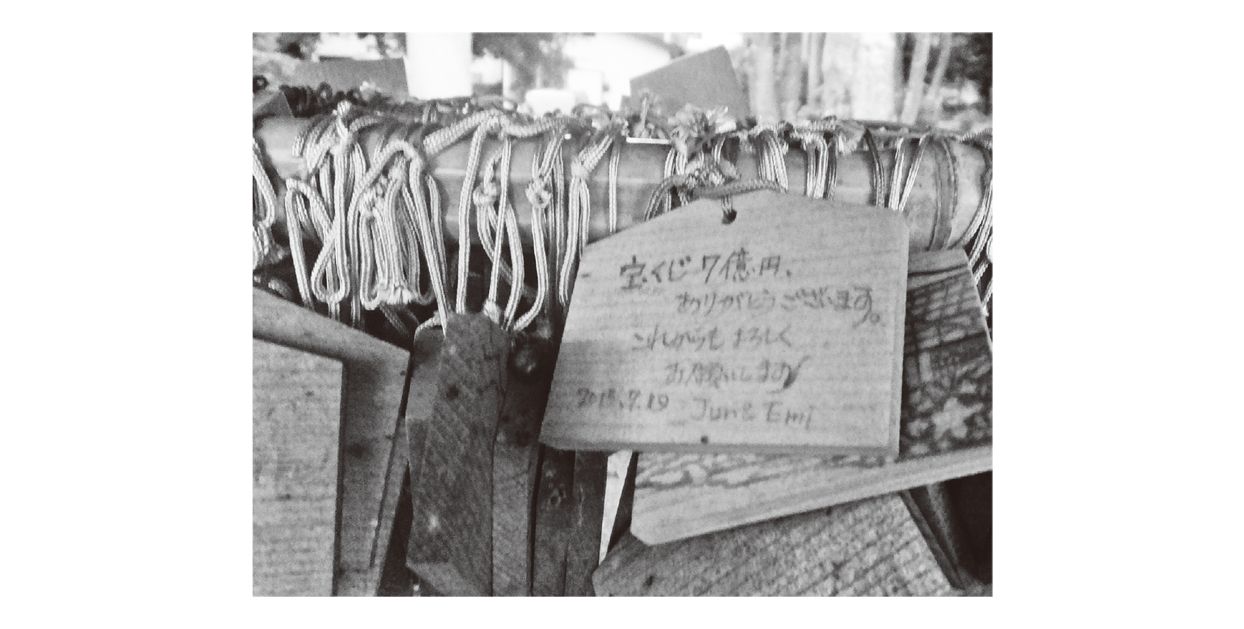 宝くじ7億円、
ありがとうございます。
これからもよろしく
お願いします
2015.7.19 Jun & Emi